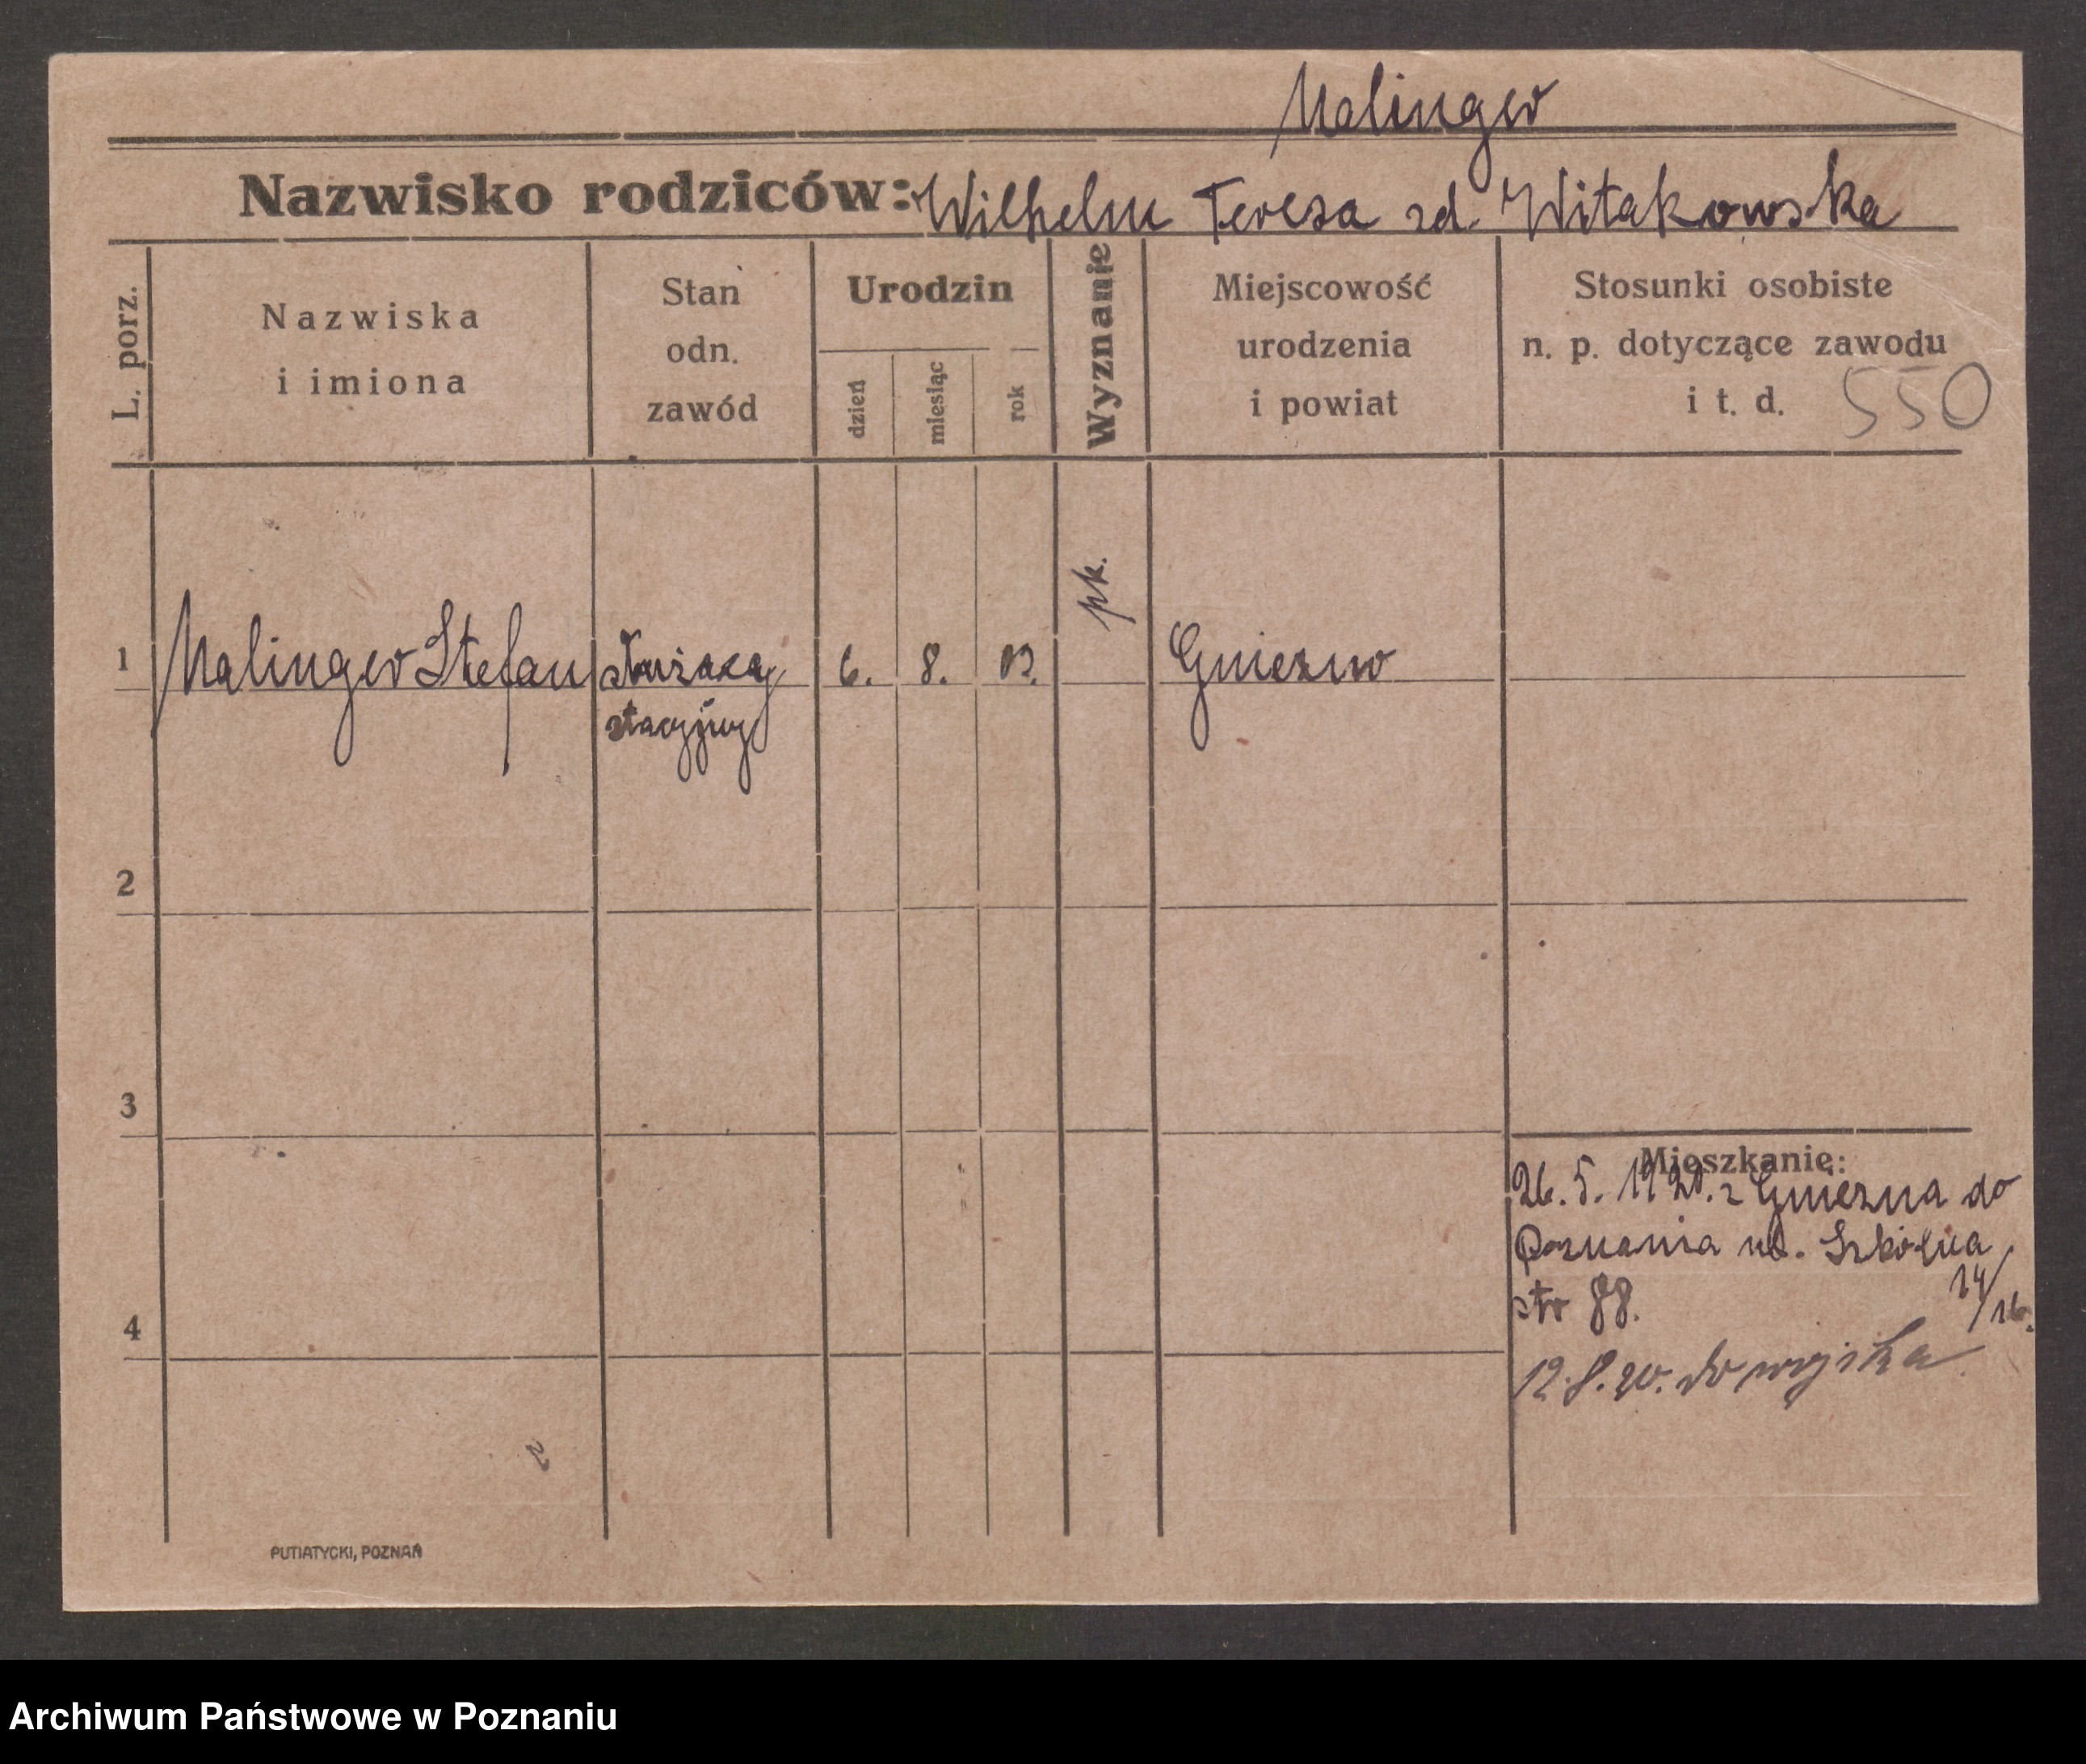 Malinger
Nazwisko rodziców: Wilhelm Teresa zd. Witakowska
L. porz.
Nazwiska
i imiona
Stan
odn.
zawód
Urodzin
dzień
miesiąc
rok
Wyznanie
Miejscowość
urodzenia
i powiat
Stosunki osobiste
n. p. dotyczące zawodu
i t. d.
550
1 Malinger Stefan 6. 8. pk. Gniezno
stacyjny
2
3
4
Mieszkanie:
26. 5. 1920. z Gniezna do
Poznania ul. Szkolna
14/16.
str 88.
12.8.20. do wojska
PUTIATYCKI, POZNAŃ
Archiwum Państwowe w Poznaniu